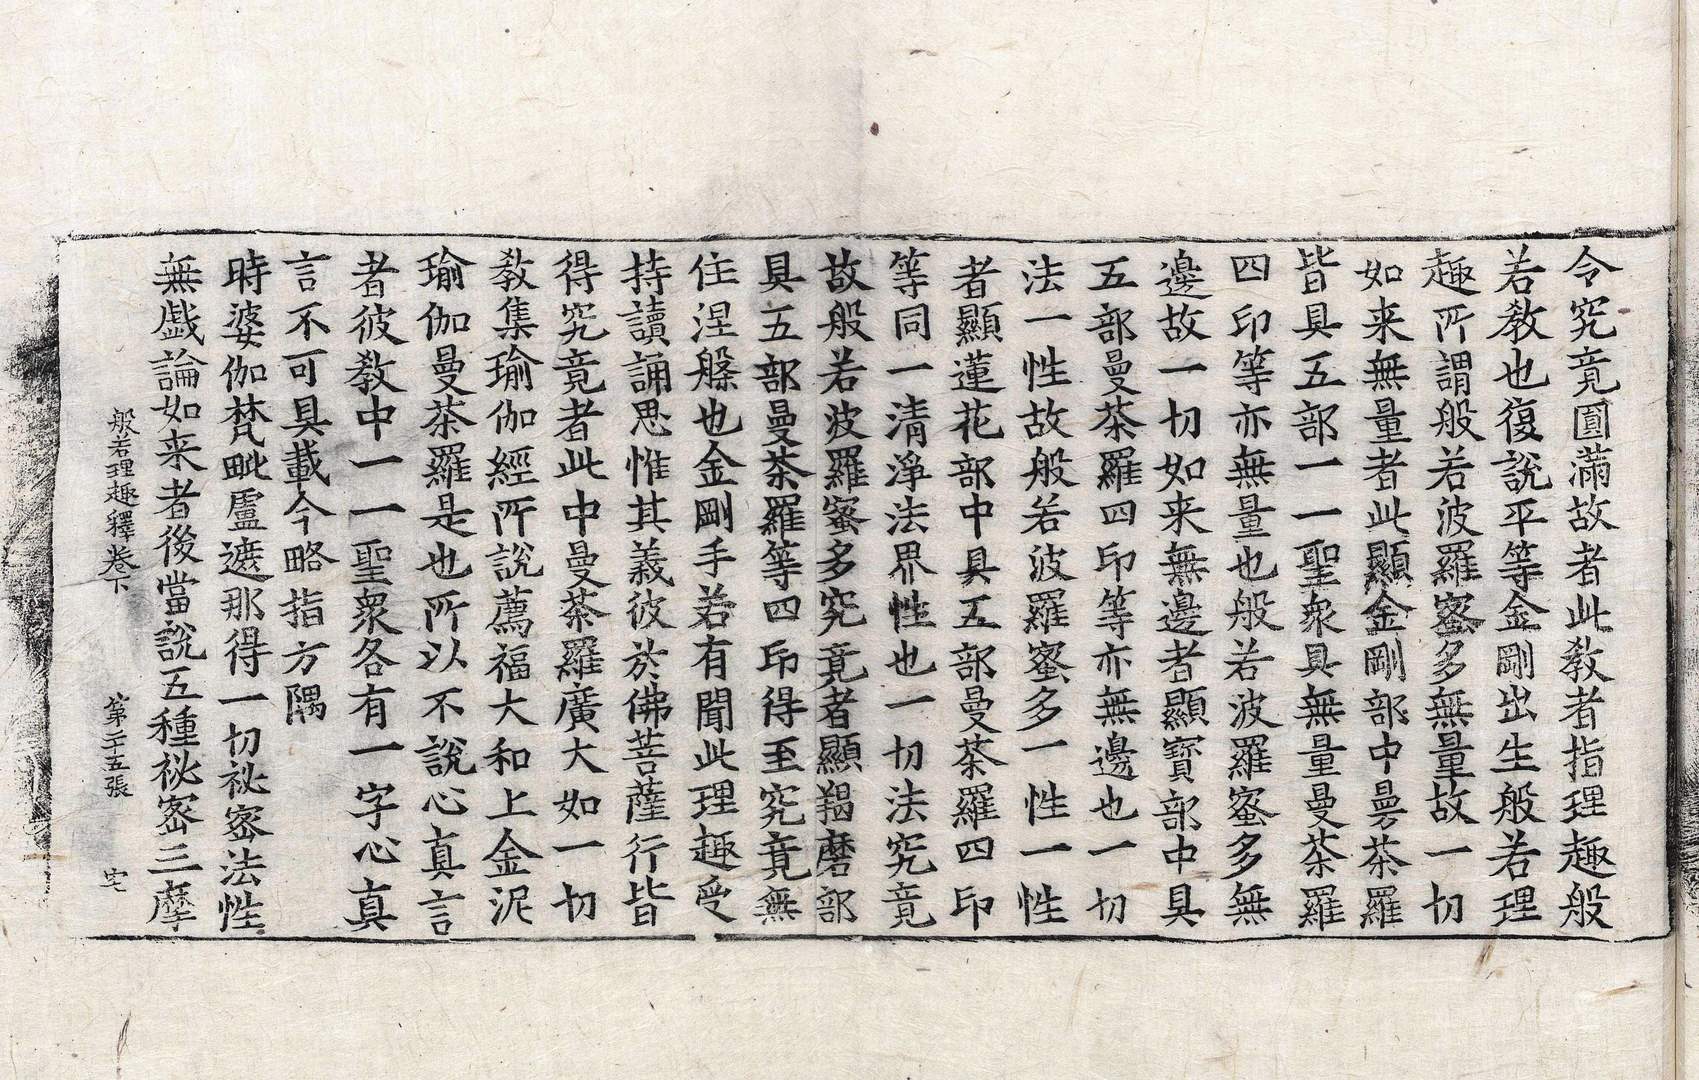 令究竟圓滿故者此教者指理趣般
若教也復說平等金剛出生般若理
趣所謂般若波羅蜜多無量故一切
如来無量者此顯金剛部中曼茶羅
皆具五部一一聖衆具無量曼茶羅
四印等亦無量也般若波羅蜜多無
邊故一切如来無邊者顯寳部中具
五部曼茶羅四印等亦無邊也一切
法一性故般若波羅蜜多一性一性
者顯蓮花部中具五部曼茶羅四印
等同一清淨法界性也一切法究竟
故般若波羅蜜多究竟者顯羯磨部
具五部曼茶羅等四印得至究竟無
住涅槃也金剛手若有聞此理趣受
持讀誦思惟其義彼於佛菩薩行皆
得究竟者此中曼茶羅廣大如一切
教集瑜伽經所說薦福大和上金泥
瑜伽曼茶羅是也所以不說心真言
者彼教中一一聖衆各有一字心真
言不可具載今略指方隅
時婆伽梵毗盧遮那得一切祕密法性
無戲論如来者後當說五種祕密三摩
般若理趣釋卷下 第二十五張 宅